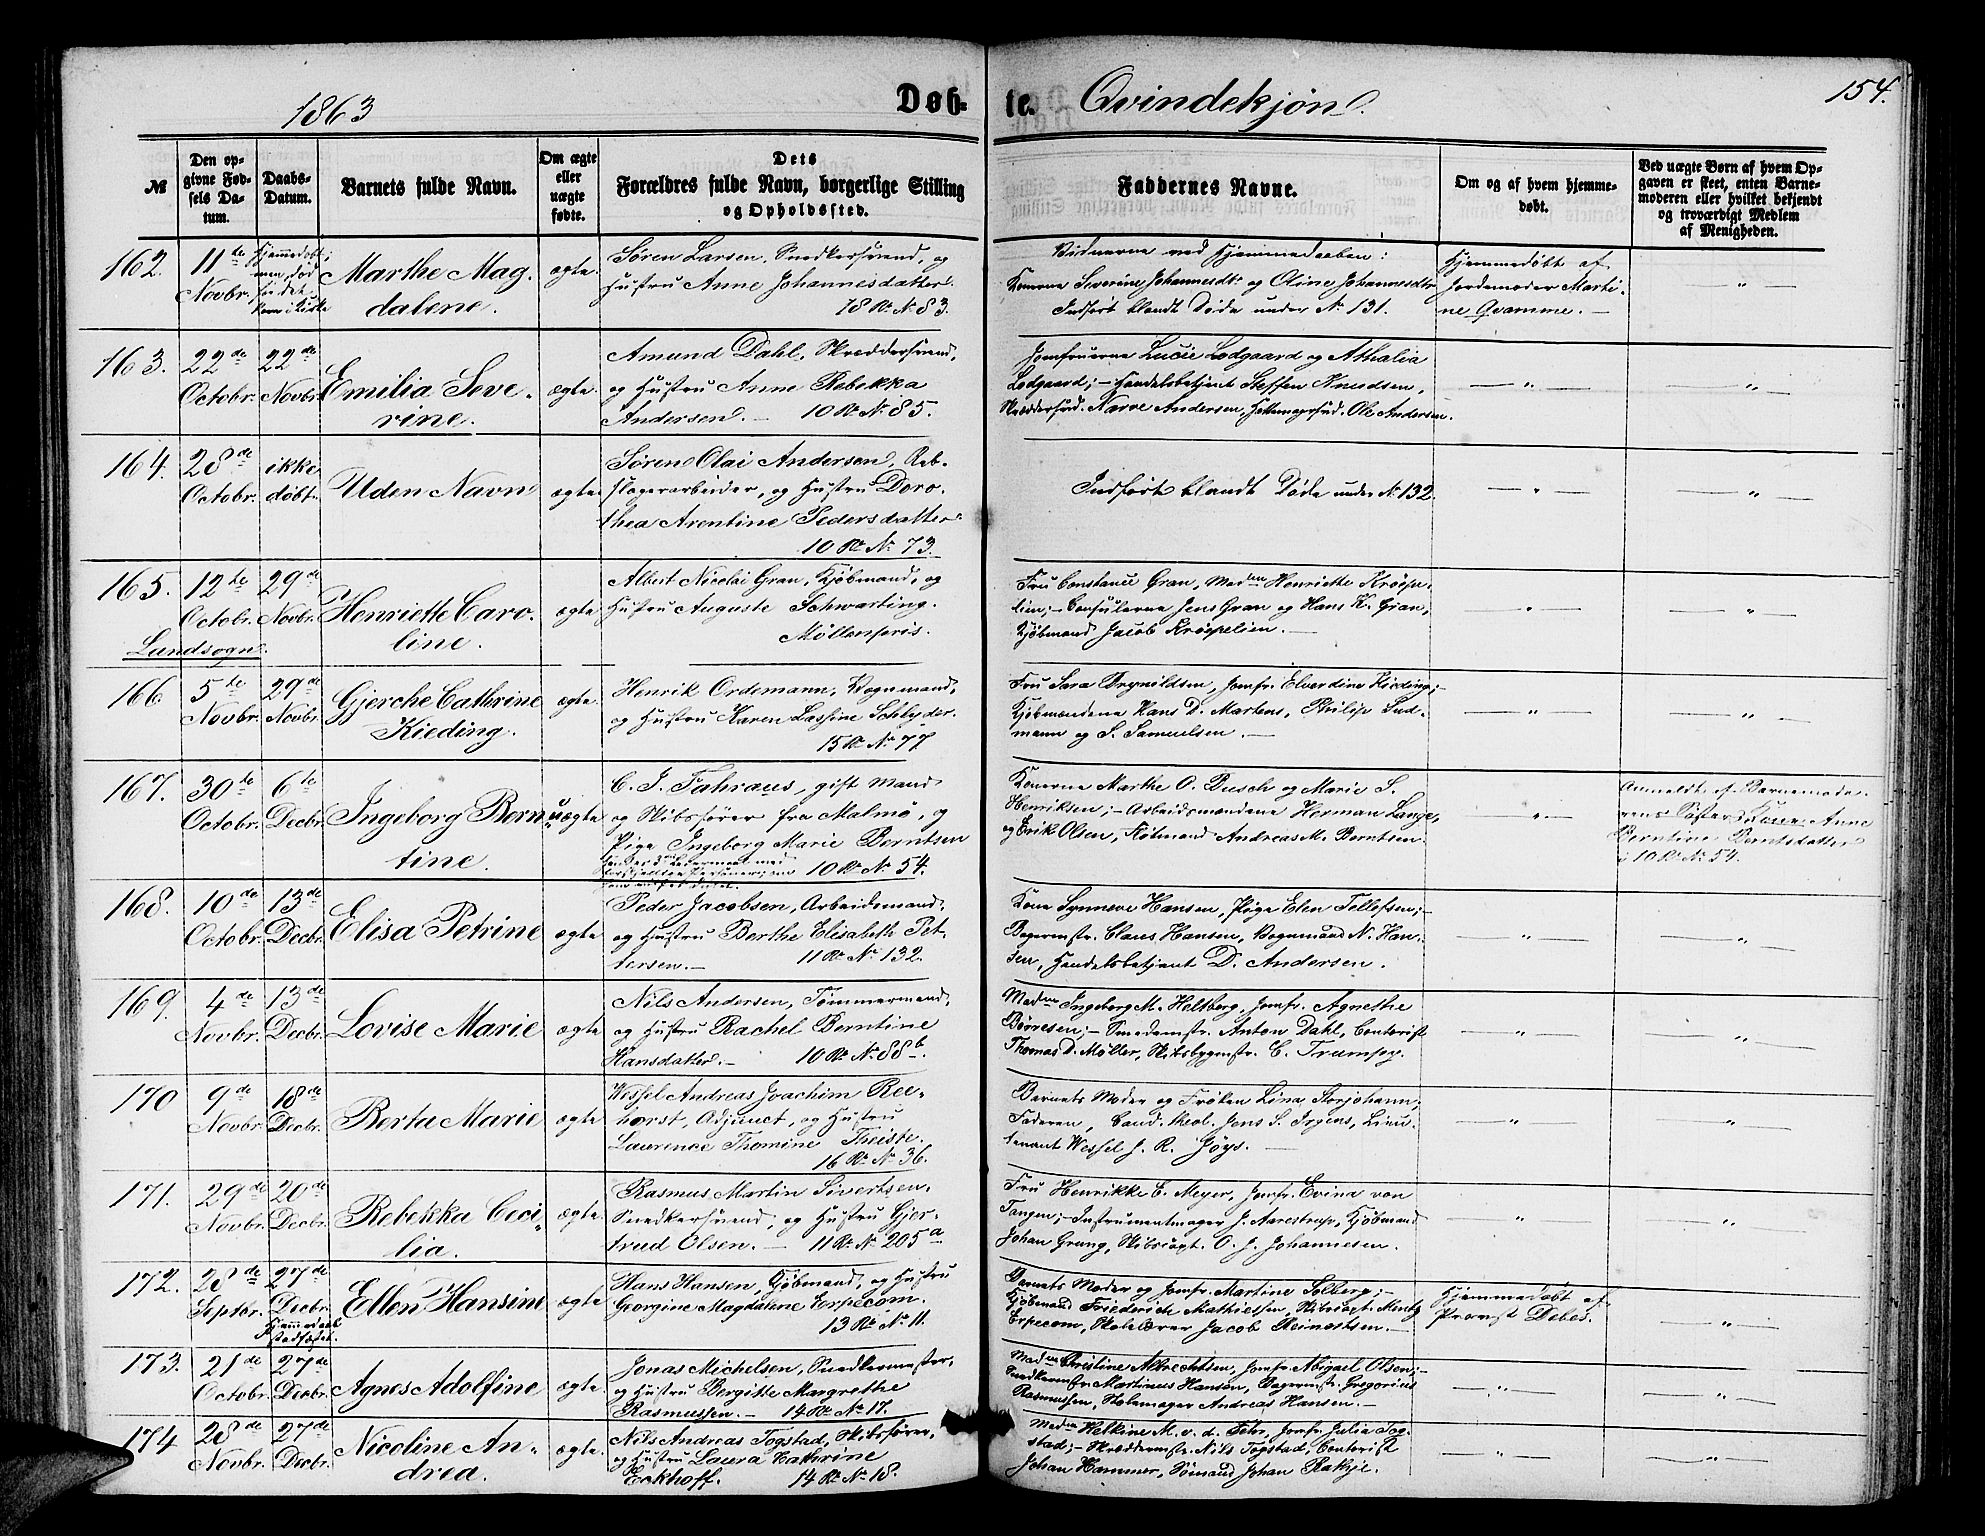 1863
Døb-
te. Qvindekjøn.
154.
№
Den op-
givne Fød-
sels Da-
tum.
Daabs-
Datum.
Barnets fulde Navn.
Om ægte
eller
uægte
fødte.
Dets
Forældres fulde Navn, borgerlige Stilling
og Opholdssted.
Faddernes Navne.
Om og af hvem hjemme-
døbt.
Ved uægte Børn af hvem Op-
gaven er skeet, enten Barne-
moderen eller hvilket bekjendt
og troværdigt Medlem
af Menigheden.
162.
11te
Novbr.
Hjemmedøbt;
men død
Marthe Mag-
dalene.
ægte.
Søren Larsen, Snedkersvend, og
Hustru Anne Johannesdatter.
18 R. N. 83.
Vidnerne ved Hjemmedaaben:
Konerne Severine Johannesdtr. og Oline Johannesdtr
Indført blandt Døde under No 131.
Hjemmedøbt af
Jordemoder Marti-
ne Qvamme.
163.
22de
Octobr.
22de
Novbr.
Emilia Seve-
rine.
ægte.
Amund Dahl, Skræddersvend,
og Hustru Anne Rebekka
Andersen. 10 R. N. 85.
Jomfruerne Lucie Lodgaard og Athalia
Lodgaard; - Handelsbetjent Steffen Knudsen,
Skræddersvd. Narve Andersen, Hattemagersvd. Ole Andersen.
164.
28de
Octobr.
ikke
døbt.
Uden Navn
ægte.
Søren Olai Andersen, Reb-
slagerarbeider, og Hustru Doro-
thea Arentine Pedersdatter.
10 R. N. 73.
Indført blandt Døde under N. 132.
165.
12te
Octobr.
29de
Novbr.
Landsogn.
Henriette Caro-
line.
ægte
Albert Nicolai Gran, Kjøbmand, og
Hustru Auguste Schwarting.
Møllenpris.
Fru Constance Gran, Madm Henriette Krøepe-
lien; - Consulerne Jens Gran og Hans K. Gran,
Kjøbmand Jacob Krøpelien.
166
5te
Novbr.
29de
Novbr.
Gjerche Cathrine
Kieding.
ægte.
Henrik Ordemann, Vognmand,
og Hustru Karen Lassine Schlyder.
15 R. No 77
Fru Sara Brynildsen, Jomfr. Elverdina Kieding; -
Kjøbmændene Hans D. Martens, Philip Sud-
mann og S. Samuelsen.
167.
30te
Octobr.
6te
Decbr.
Ingeborg Bern-
tine.
uægte
C. J. Fahraus, gift Mand
og Skibsfører fra Malmø, og
Pige Ingeborg Marie Berntsen
10 R. No 54.
Konerne Marthe O. Busch og Marie S.
Henriksen; - Arbeidsmændene Herman Lange,
og Erik Olsen, Købmand Andreas M. Berntsen.
Anmeldt af Barnemode-
rens Søster Anne
Berntine Berntsdatter
i 10 R. N. 54.
168.
10de
Octobr.
13de
Decbr.
Elisa Petrine
ægte
Peder Jacobsen, Arbeidsmand,
og Hustru Berthe Elisabeth Pet-
tersen. 11 R. No 132.
Kone Synneve Hansen, Pige Elen Tellefsen; -
Bagermstr. Claus Hansen, Vognmand N. Han-
sen, Handelsbetjent D. Andersen.
169.
4de
Novbr.
13de
Decbr.
Lovise Marie
ægte
Nils Andersen, Tømmermand,
og Hustru Rachel Berntine
Hansdatter. 10 R. N. 88b.
Madm Ingeborg M. Heltberg, Jomfr. Agnethe
Børresen; - Smedemstr. Anton Dahl, Contorist
Thomas D. Møller, Skibsbygmstr. C. Trumpy.
170
9de
Novbr.
18de
Decbr.
Berta Marie
ægte
Wessel Andreas Joachim Ree-
horst, Adjunct, og Hustru
Laurence Thomine Theiste.
16 R. No 36.
Barnets Moder og Frøken Lina Storjohann;
Faderen, Cand. theol. Jens S. Irgens, Lieu-
tenant Wessel J. R. Jøys.
171.
29de
Novbr.
20de
Decbr.
Rebekka Ceci-
lia.
ægte.
Rasmus Martin Sivertsen,
Snedkersvend, og Hustru Gjer-
trud Olsen. 11 R. No 205a
Fru Henrikke C. Meyer, Jomfr. Evina von
Tangen; - Instrumentmager J. Aarestrup, Kjøbmand
Johan Grung, Skibscapt. O. J. Johannesen.
172.
28de
Septbr.
27de
Decbr.
Hjemmedaab
stadfæstet.
Ellen Hansine
ægte
Hans Hansen, Kjøbmand, og Hustru
Georgine Magdalene Erpecom.
13 R. No 11.
Barnets Moder og Jomfr. Martine Solberg; -
Kjøbmand Friederich Mathiessen, Skibscapt. Mentz
Erpecom, Skolelærer Jacob Reinertsen.
Hjemmedøbt af
Provst Debes.
173.
21de
Octobr.
27de
Decbr.
Agnes Adolfine
ægte.
Jonas Michelsen, Snedkermester,
og Hustru Bergitte Margrethe
Rasmussen. 14 R. No 17.
Madm Christine Albrechtsen, Jomfr. Abigael Olsen; -
Snedkermstr. Martinus Hansen, Bagermstr. Gregorius
Rasmussen, Stolemager Andreas Hansen.
174
28de
Novbr.
27de
Decbr.
Nicoline An-
drea.
ægte.
Nils Andreas Togstad, Skibsfører,
og Hustru Laura Kathrine
Eckhoff. 14 R. No 18.
Madm Helkine M. v. d. Fehr, Jomfr. Julia Tog-
stad; - Skræddermstr. Nils Togstad, Contorist
Johan Hammer, Sømand Johan Rakje.